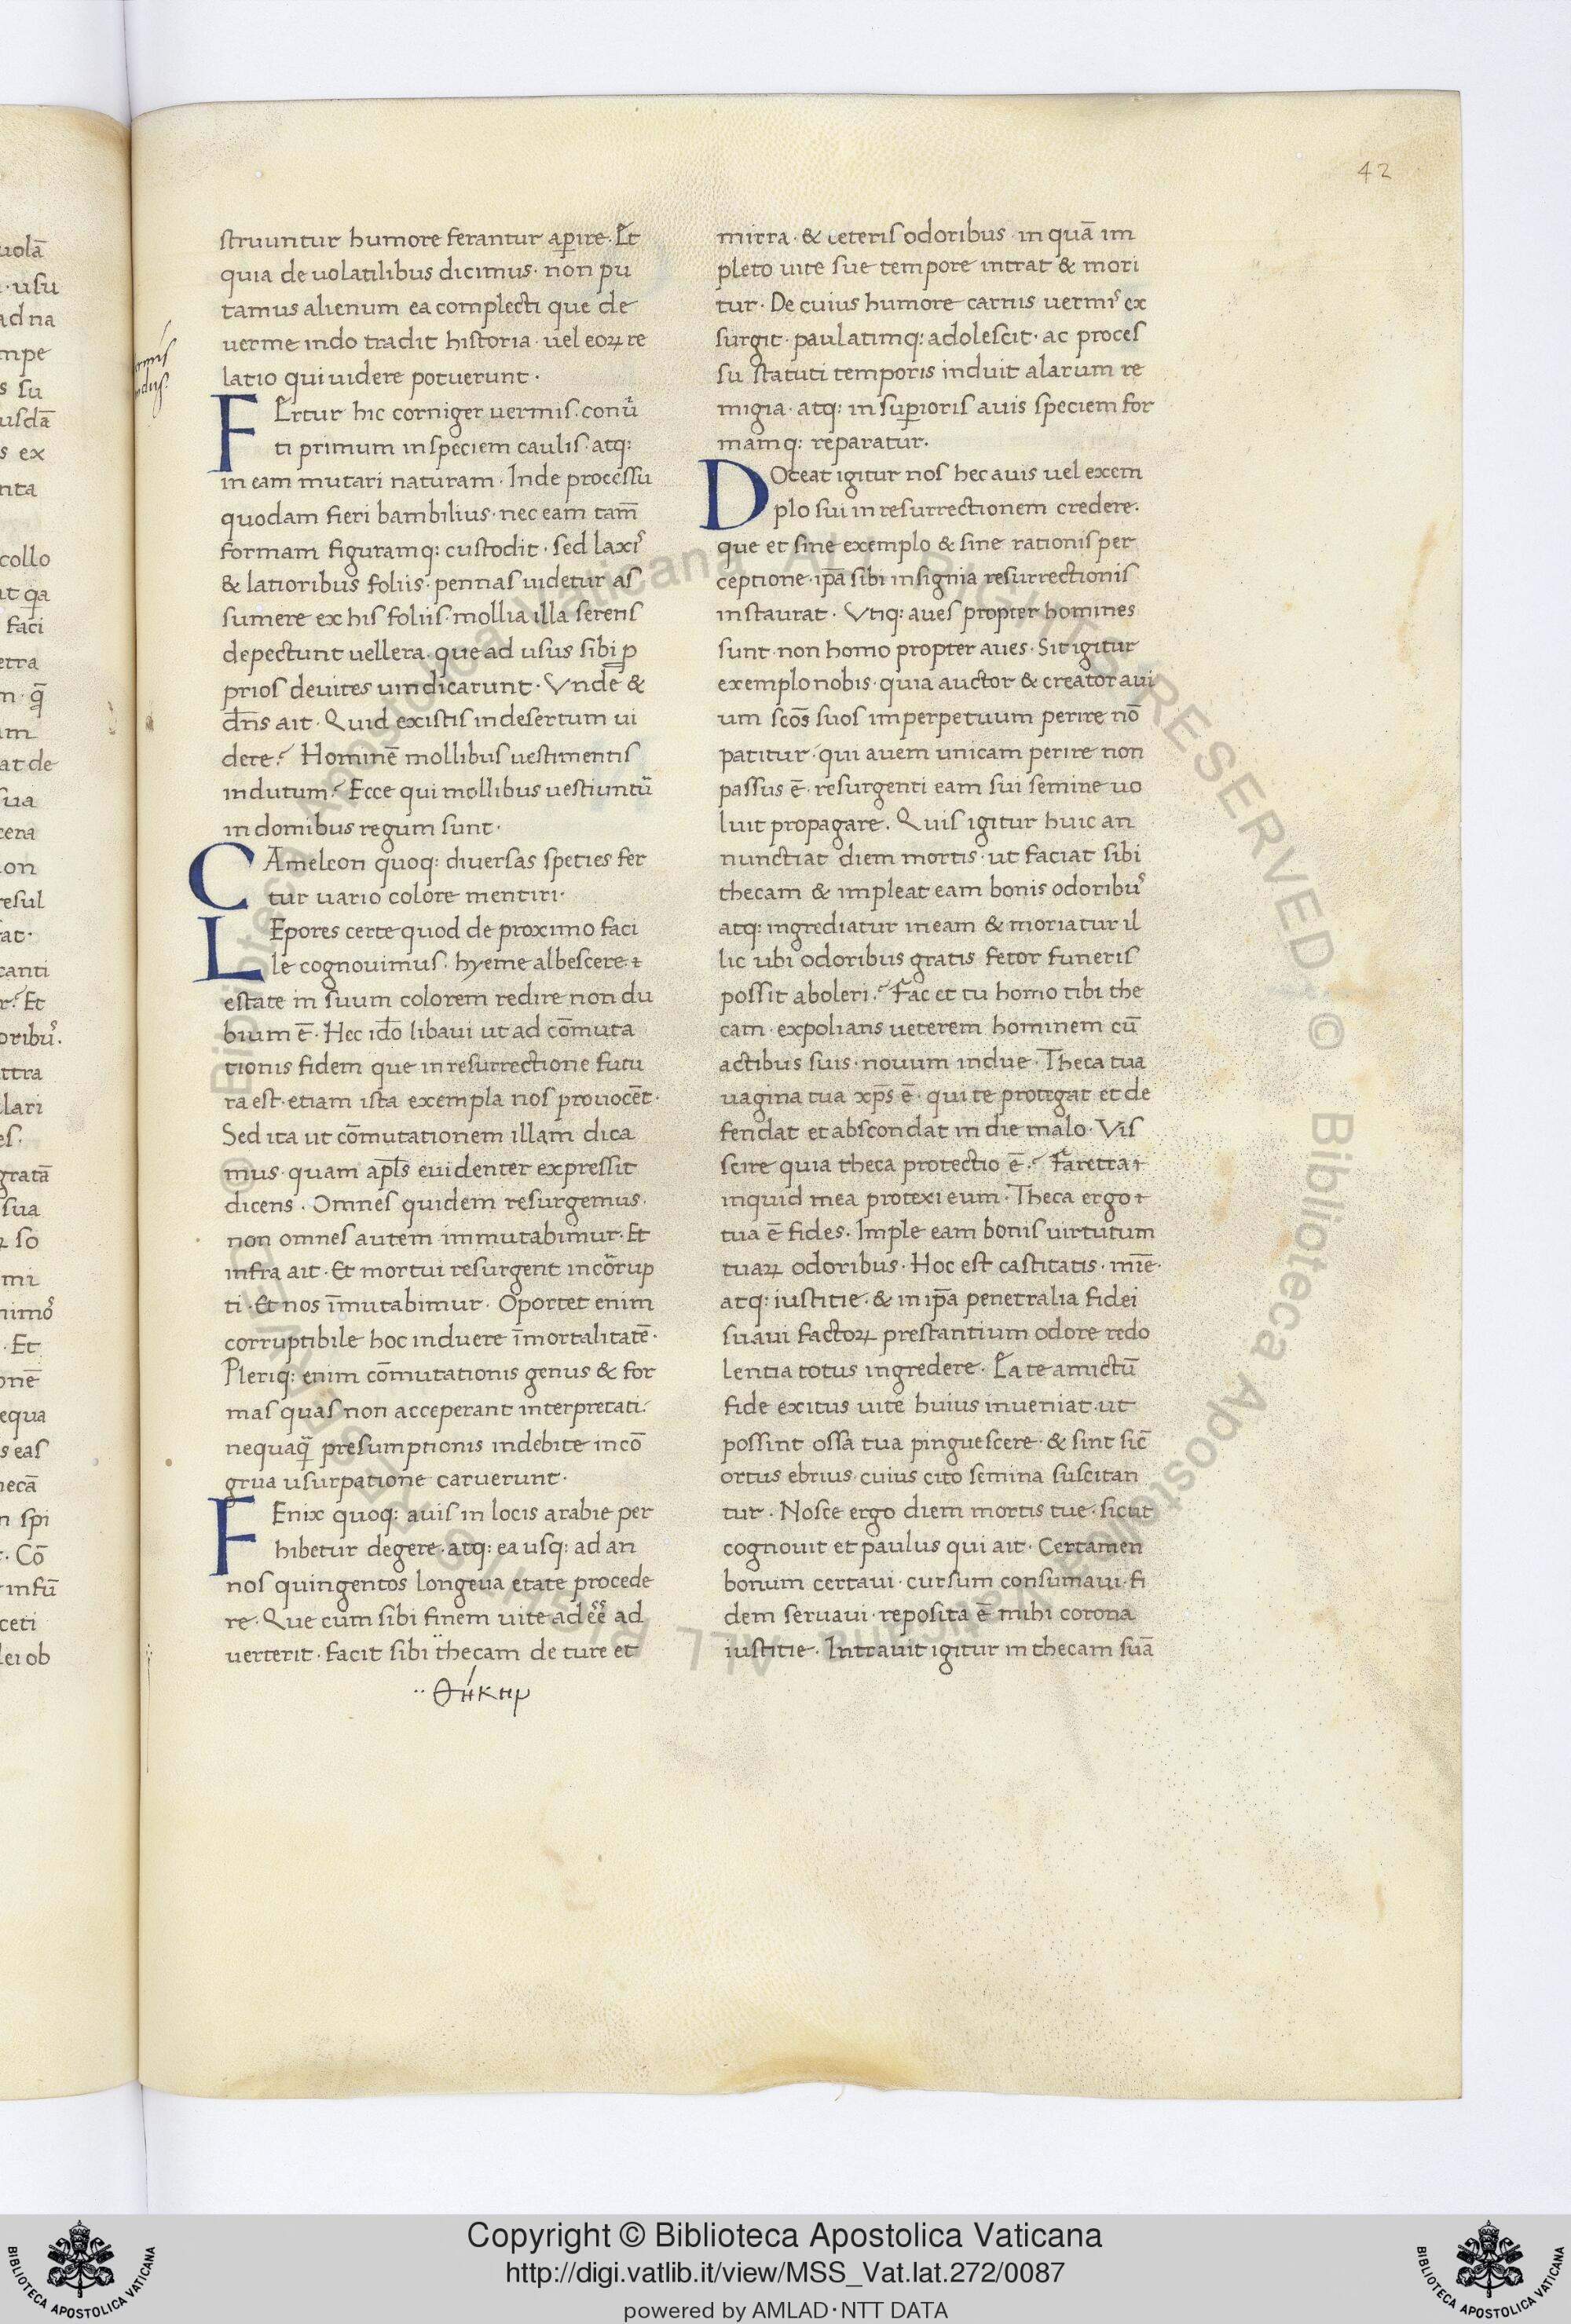 42
struuntur humore ferantur aꝑire. Et
quia de uolatilibus dicimus· non pu
tamus alienum ea complecti que de
uerme indo tradit historia· uel eoꝝ re
latio qui uidere potuerunt·
FErtur hic corniger uermis. conũ
ti primum in speciem caulis. atq:
in eam mutari naturam· Inde processu
quodam fieri bambilius· nec eam tam̃
formam figuramq: custodit· sed laxi᷒
& latioribus foliis· pennas uidetur as
sumere ex his foliis· mollia illa serens
depectunt uellera. que ad usus sibi ꝓ
prios deuites uindicarunt· Vnde &
dn̄s ait· Quid existis in desertum ui
dere? Hominē mollibus uestimentis
indutum? Ecce qui mollibus uestiuntũ
in domibus regum sunt·
CAmeleon quoq: diuersas speties fer
tur uario colore mentiri·
LEpores certe quod de proximo faci
le cognouimus. hyeme albescere· ⁊
estate in suum colorem redire non du
bium ē· Hec idō libaui ut ad cōmuta
tionis fidem que in resurrectione futu
ra est· etiam ista exempla nos prouocēt·
Sed ita ut cōmutationem illam dica
mus· quam apl̄s euidenter expressit
dicens. Omnes quidem resurgemus.
non omnes autem immutabimur· Et
infra ait· Et mortui resurgent incorrup
ti· Et nos īmutabimur· Oportet enim
corruptibile hoc induere īmortalitatē·
Pleriq: enim cōmutationis genus & for
mas quas non acceperant interpretati·
nequaq̄ presumptionis indebite incō
grua usurpatione caruerunt·
FEnix quoq: auis in locis arabie per
hibetur degere. atq: ea usq: ad an
nos quingentos longeua etate procede
re· Que cum sibi finem uite adeē ad
uerterit· facit sibi thecam de ture et
·· θήκην
mirra· & ceteris odoribus· in quā im
pleto uite sue tempore intrat & mori
tur· De cuius humore carnis uermi᷒ ex
surgit· paulatimq: adolescit· ac proces
su statuti temporis induit alarum re
migia· atq: in suꝑioris auis speciem for
mamq: reparatur.
DOceat igitur nos hec auis uel exem
plo sui in resurrectionem credere.
que et sine exemplo & sine rationis per
ceptione· ip̄a sibi insignia resurrectionis
instaurat· Vtiq: aues propter homines
sunt· non homo propter aues· Sit igitur
exemplo nobis· quia auctor & creator aui
um scōs suos imperpetuum perire nō
patitur· qui auem unicam perire non
passus ē· resurgenti eam sui semine uo
luit propagare. Quis igitur huic an
nunctiat diem mortis· ut faciat sibi
thecam & impleat eam bonis odoribu᷒
atq: ingrediatur in eam & moriatur il
lic ubi odoribus gratis fetor funeris
possit aboleri? Fac et tu homo tibi the
cam· expolians ueterem hominem cū
actibus suis· nouum indue· Theca tua
uagina tua xp̄s ē· qui te protegat et de
fendat et abscondat in die malo· Vis
scire quia theca protectio ē? Faretra ⁊
inquid mea protexi eum· Theca ergo ⁊
tua ē fides. Imple eam bonis uirtutum
tuaꝝ odoribus· Hoc est castitatis· mīe·
atq: iustitie· & in ip̄a penetralia fidei
suaui factoꝝ prestantium odore redo
lentia totus ingredere· Ea te amictū
fide exitus uite huius inueniat· ut
possint ossa tua pinguescere· & sint sic̄
ortus ebrius· cuius cito semina suscitan
tur· Nosce ergo diem mortis tue· sicut
cognouit et paulus qui ait· Certamen
bonum certaui· cursum consumaui· fi
dem seruaui· reposita ē mihi corona
iustitie· Intrauit igitur in thecam suā
Copyright © Biblioteca Apostolica Vaticana
http://digi.vatlib.it/view/MSS_Vat.lat.272/0087
powered by AMLAD·NTT DATA